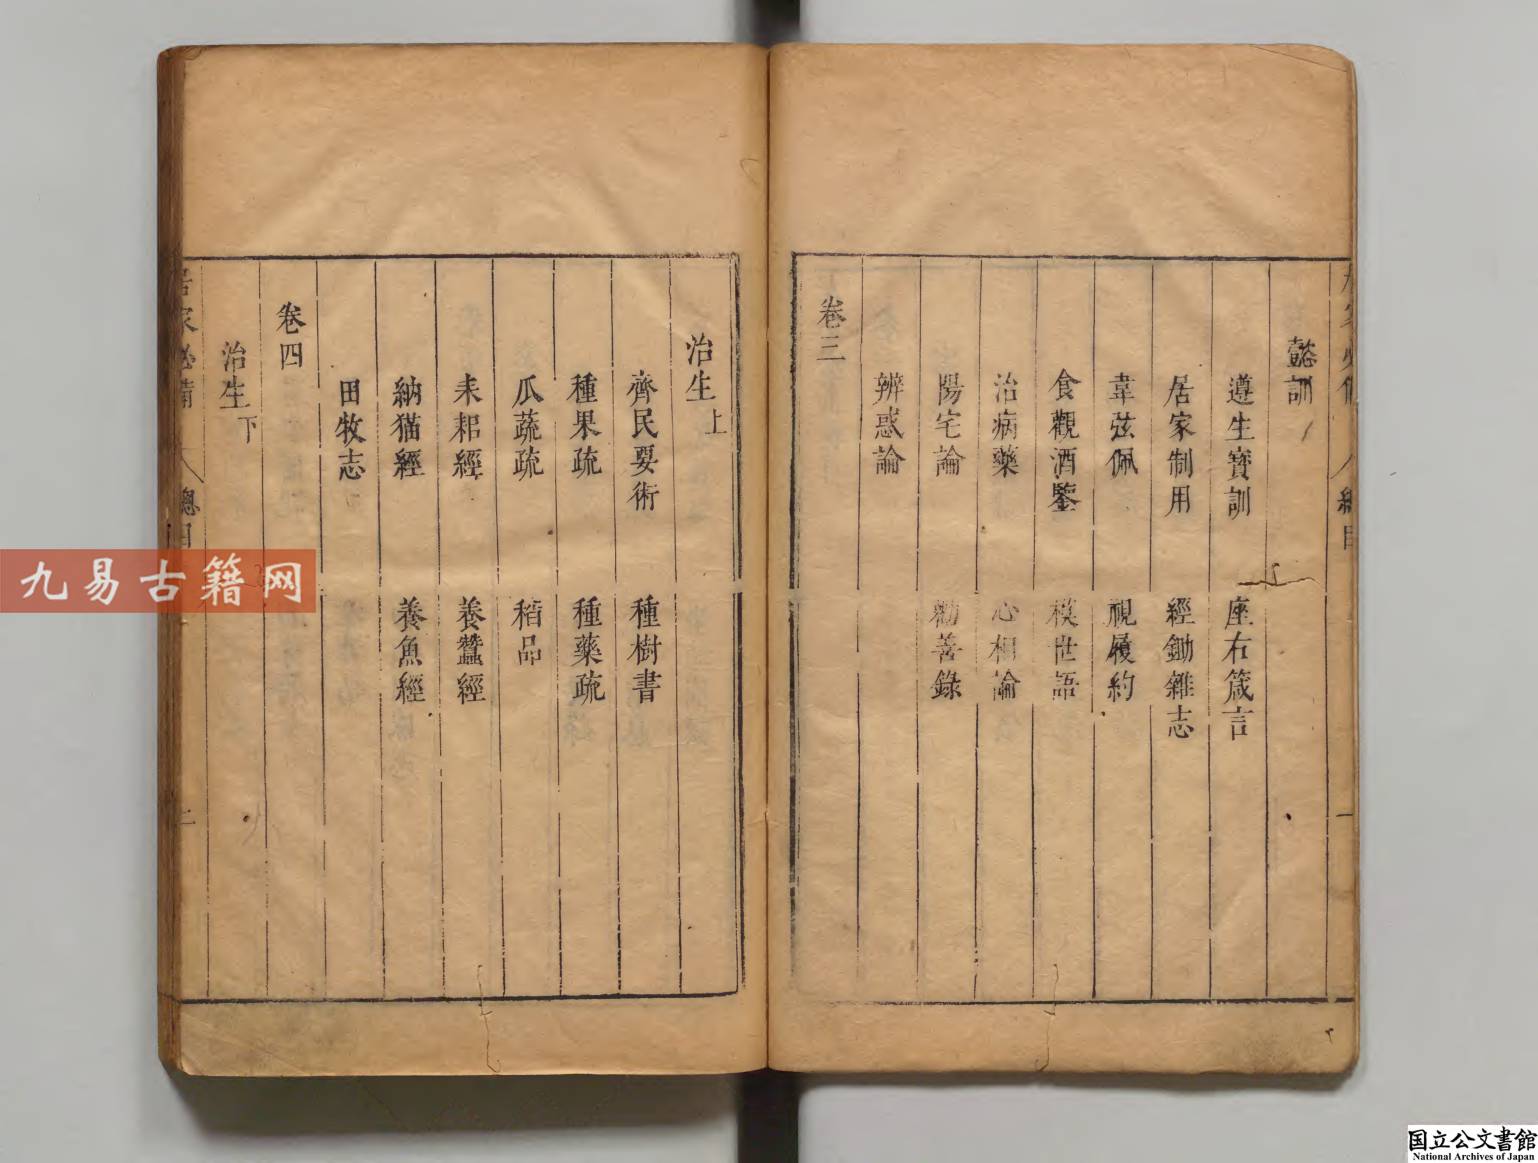 懿訓
遵生寶訓　座右箴言
居家制用　經鋤雜志
韋弦佩　視履約
食觀酒鑒　模世語
治病藥　心相論
陽宅論　勸善錄
辨惑論
卷三
治生上
齊民要術　種樹書
種果疏　種藥疏
瓜蔬疏　稻品
耒耜經　養蠶經
納猫經　養魚經
田牧志
卷四
治生下
居家必備　總目　二
九易古籍网
国立公文書館
National Archives of Japan